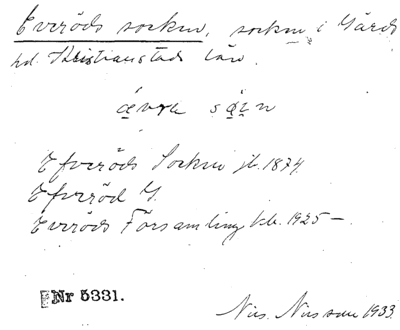 Everöds socken, socken i Gärds
hd. Kristianstads län.
Efveröds Socken jb. 1874.
Efveröd G.
Everöds Församling kb. 1925–
Nr 5331.
Nils Nilsson 1933.